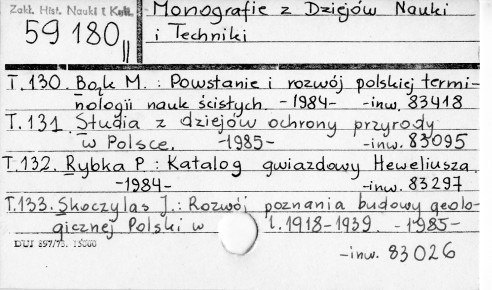 Zakł. Hist. Nauki i Kult.
59 180
Monografie z Dziejów Nauki
i Techniki
T.130. Bąk M. : Powstanie i rozwój polskiej termi-
nologii nauk ścisłych. -1984- -inw. 83418
T.131. Studia z dziejów ochrony przyrody
w Polsce. -1985- -inw. 83095
T.132. Rybka P : Katalog gwiazdowy Heweliusza.
-1984- -inw. 83297
T.133. Skoczylas J.: Rozwój poznania budowy geolo-
gicznej Polski w l. 1918-1939. -1985-
DUJ 897/73. 15000
-inw. 83026